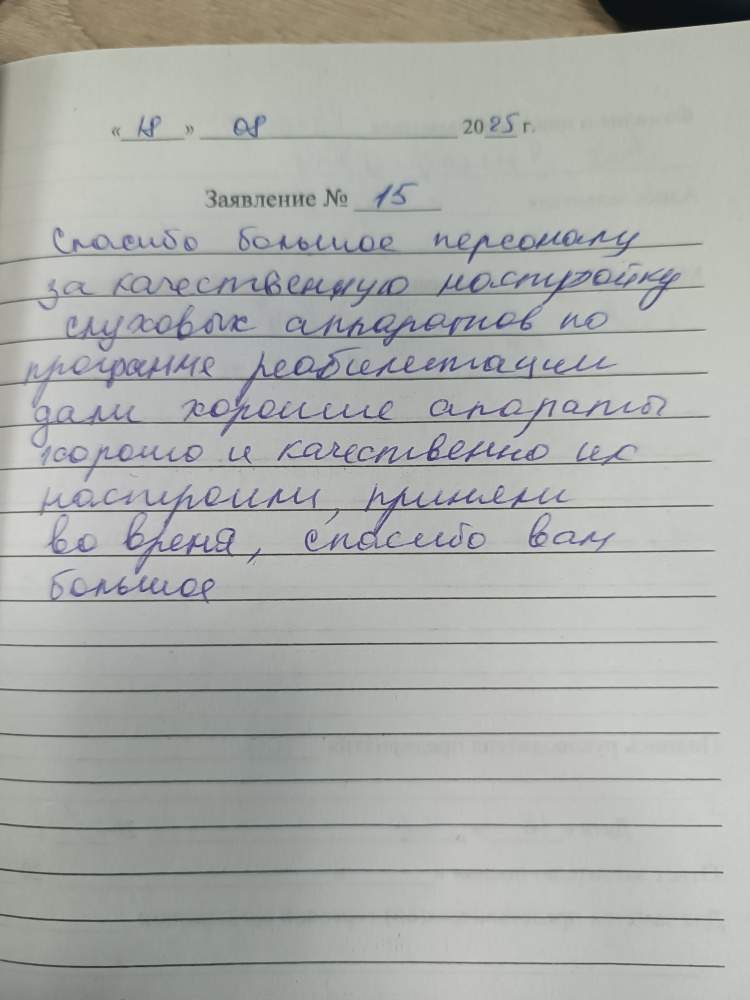 « 18 » 08 2025 г.
Заявление № 15
Спасибо большое персоналу
за качественную настройку
слуховых аппаратов по
программе реабилетации
дали хорошие апараты
хорошо и качественно их
настроили, приняли
во время, спасибо вам
большое